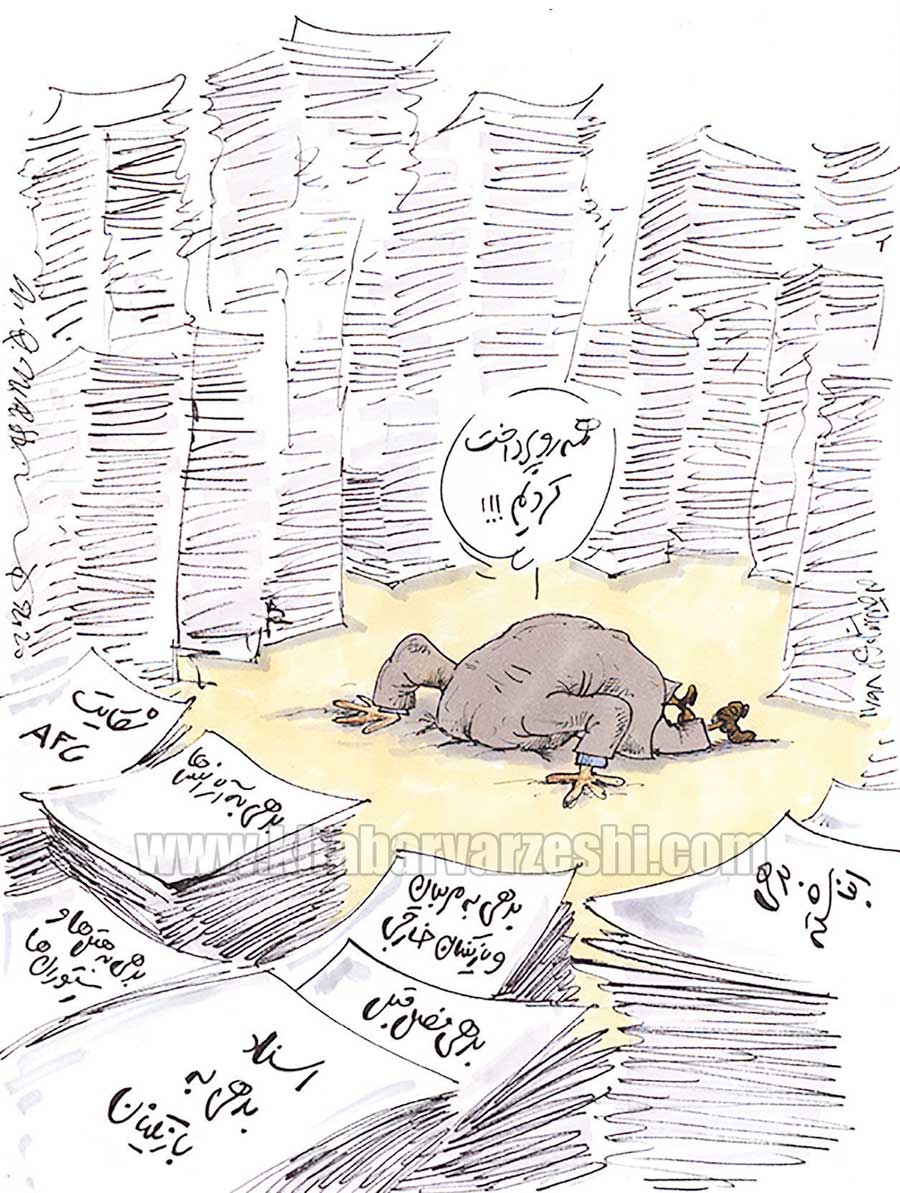 همه رو پرداخت
کردیم !!!
شکایت
AFC
بدهی به آژانس ها
www.khabarvarzeshi.com
بدهی به مربیان
و بازیکنان خارجی
بدهی
انباشته
بدهی به هتل ها و
رستوران ها
بدهی فصل قبل
اسناد
بدهی به
بازیکنان